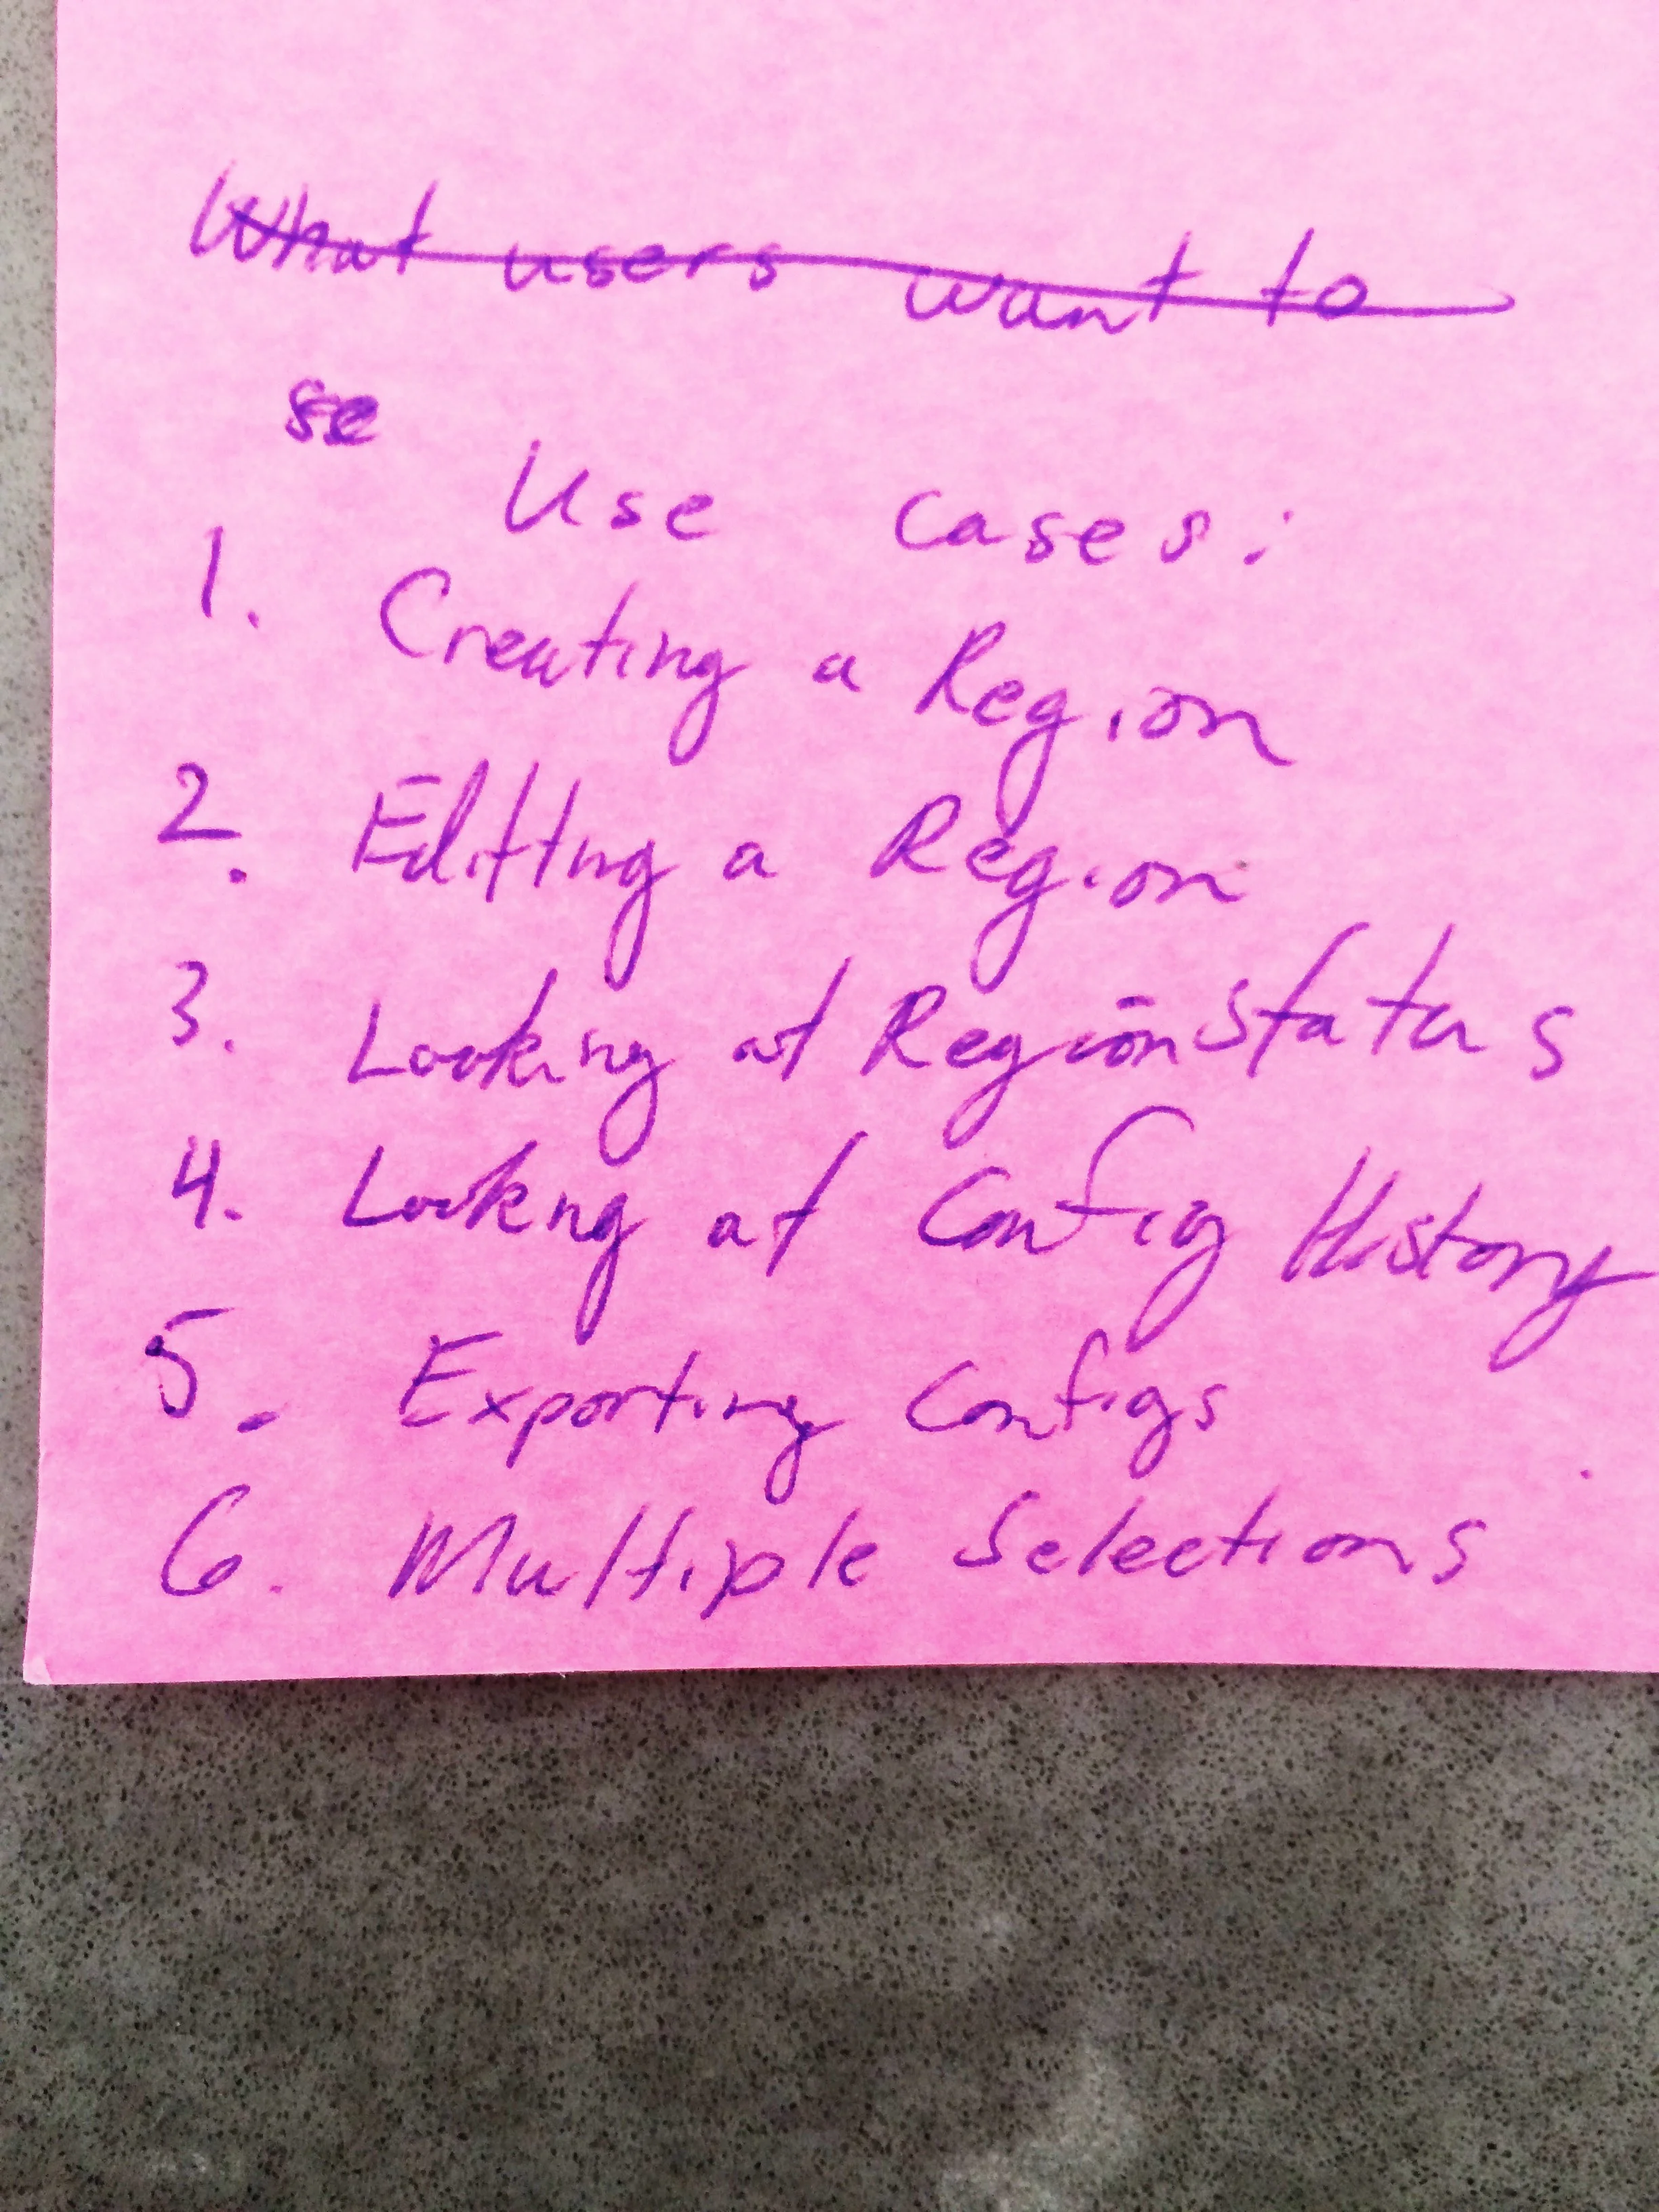 What users want to
se
Use cases:
1. Creating a Region
2. Editing a Region
3. Looking at Region Status
4. Looking at Config History
5. Exporting Configs
6. Multiple Selections